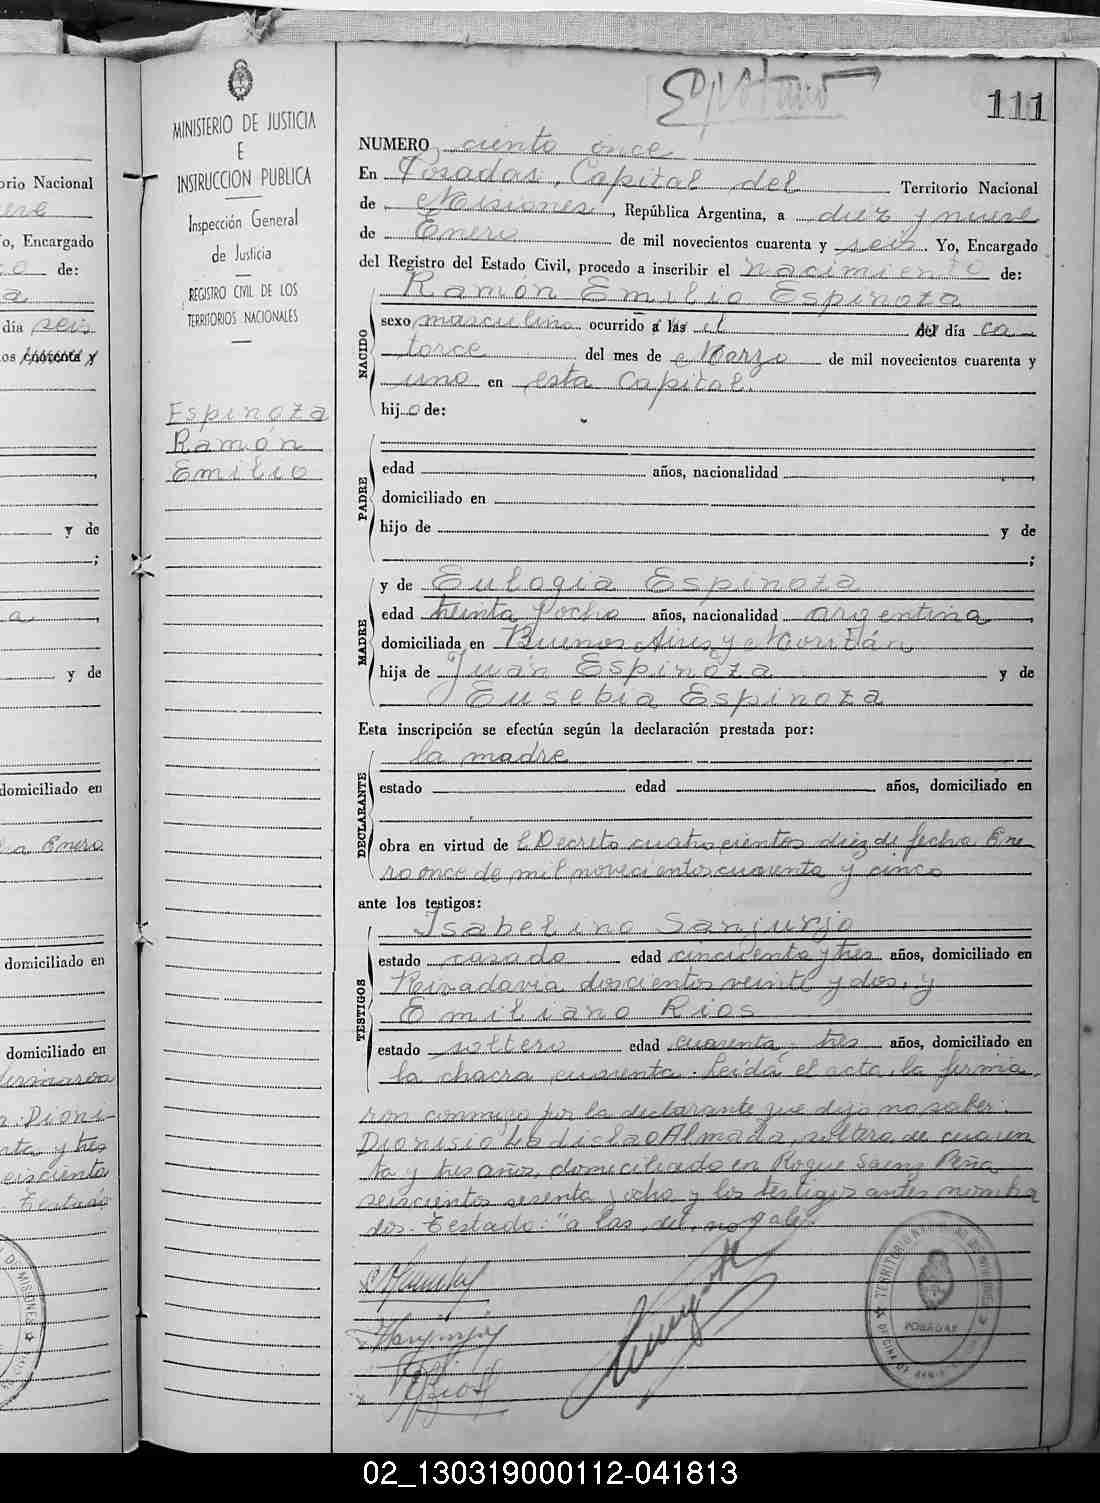 Espósitano
111
MINISTERIO DE JUSTICIA
E
INSTRUCCION PUBLICA
Inspección General
de Justicia
REGISTRO CIVIL DE LOS
TERRITORIOS NACIONALES
Espinoza
Ramón
Emilio
NUMERO ciento once
En Posadas, Capital del Territorio Nacional
de Misiones, República Argentina, a diez y nueve
de Enero de mil novecientos cuarenta y seis. Yo, Encargado
del Registro del Estado Civil, procedo a inscribir el nacimiento de:
Ramón Emilio Espinoza
NACIDO
sexo masculino ocurrido a las el del día ca
torce del mes de Marzo de mil novecientos cuarenta y
uno en esta Capital.
hijo de:
PADRE
edad años, nacionalidad
domiciliado en
hijo de y de
;
MADRE
y de Eulogia Espinoza
edad treinta y ocho años, nacionalidad argentina
domiciliada en Buenos Aires y
hija de Juán Espinoza y de
Eusebia Espinoza
Esta inscripción se efectúa según la declaración prestada por:
DECLARANTE
la madre
estado edad años, domiciliado en
obra en virtud de el Decreto cuatrocientos diez de fecha Ene
ro once de mil novecientos cuarenta y cinco
ante los testigos:
TESTIGOS
Isabelino Sanjurjo
estado casado edad cincuenta y tres años, domiciliado en
Rivadavia doscientos veinte y dos, y
Emiliano Rios
estado soltero edad cuarenta y tres años, domiciliado en
la chacra cuarenta. Leída el acta, la firma
ron conmigo por la declarante que dijo no saber:
Dionisio Ladislao Almada, soltero, de cuaren
ta y tres años, domiciliado en Roque Saenz Peña
seiscientos sesenta y ocho y los testigos antes nombra
dos. Testado: "a las, del, no vale.
POSADAS
orio Nacional
o, Encargado
de:
día seis
y de
;
y de
domiciliado en
Enero
domiciliado en
domiciliado en
Dioni-
02_130319000112-041813